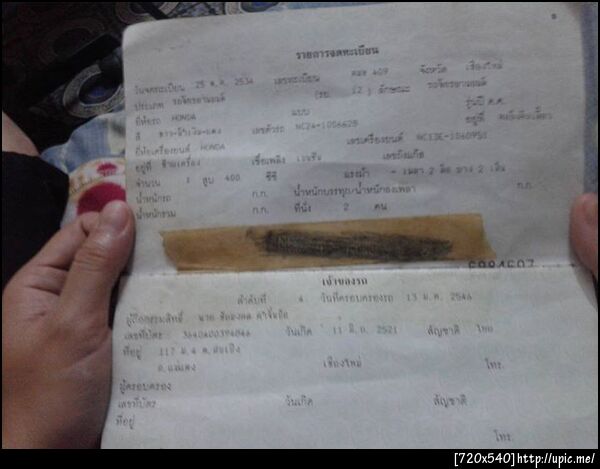 รายการจดทะเบียน
วันจดทะเบียน 25 ต.ค. 2534 เลขทะเบียน 409 จังหวัด เชียงใหม่
ประเภท รถจักรยานยนต์ (รย. 12) ลักษณะ รถจักรยานยนต์
ยี่ห้อรถ HONDA แบบ รุ่นปี ค.ศ.
สี เลขตัวรถ NC24-1056628 อยู่ที่
ยี่ห้อเครื่องยนต์ HONDA เลขเครื่องยนต์ NC13E-1060951
อยู่ที่ ข้างเครื่อง เชื้อเพลิง เบนซิน เลขถังแก๊ส
จำนวน สูบ 400 ซีซี แรงม้า - เพลา 2 ล้อ ยาง 2 เส้น
น้ำหนักรถ ก.ก. น้ำหนักบรรทุก/น้ำหนักลงเพลา ก.ก.
น้ำหนักรวม ก.ก. ที่นั่ง 2 คน
เจ้าของรถ
ลำดับที่ 4 วันที่ครอบครองรถ 13 ม.ค. 2546
ผู้ถือกรรมสิทธิ์ นาย
เลขที่บัตร 3640400394046 วันเกิด 11 2521 สัญชาติ ไทย
ที่อยู่ 117 ม.4
อ.แม่แตง เชียงใหม่ โทร.
ผู้ครอบครอง
เลขที่บัตร วันเกิด สัญชาติ
ที่อยู่
โทร.
[720x540]http://upic.me/